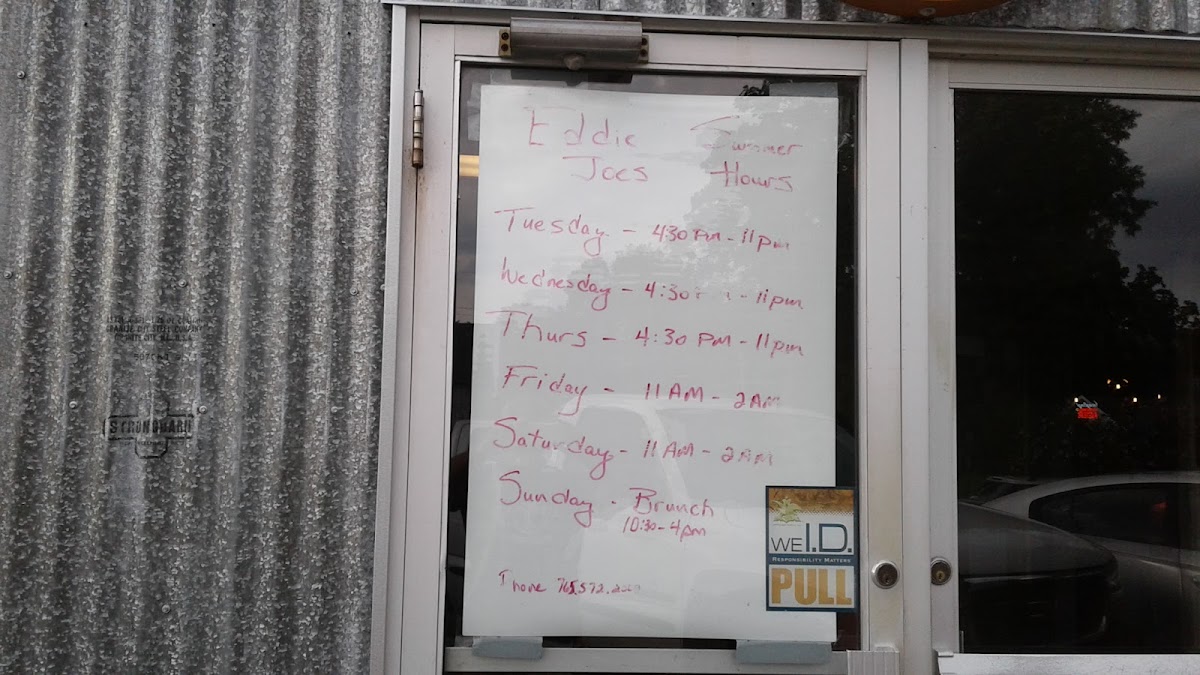 Eddie Summer
Joes Hours
Tuesday - 430 PM - 11pm
Wednesday - 4:30 - 11pm
Thurs - 4:30 PM - 11pm
Friday - 11 AM - 2AM
Saturday - 11 AM - 2AM
Sunday - Brunch
10:30 - 4pm
Phone 765.572.
WE I.D.
RESPONSIBILITY MATTERS
PULL
STRONGBARN